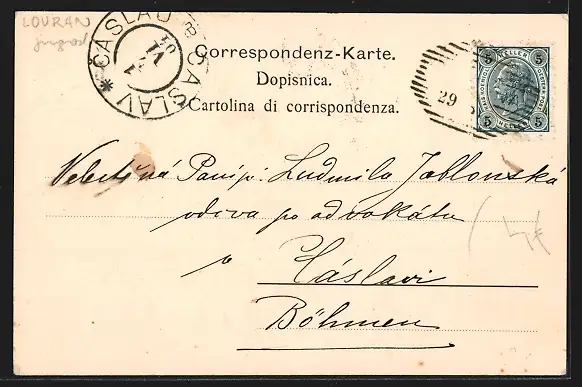 LOVRAN
ČASLAU * ČASLAV
Correspondenz-Karte.
Dopisnica.
Cartolina di corrispondenza.
29
5 HELLER 5
5 HELLER 5
Velectěná Paní p: Ludmila Jablonská
vdova po advokátu
v Čáslavi
Böhmen